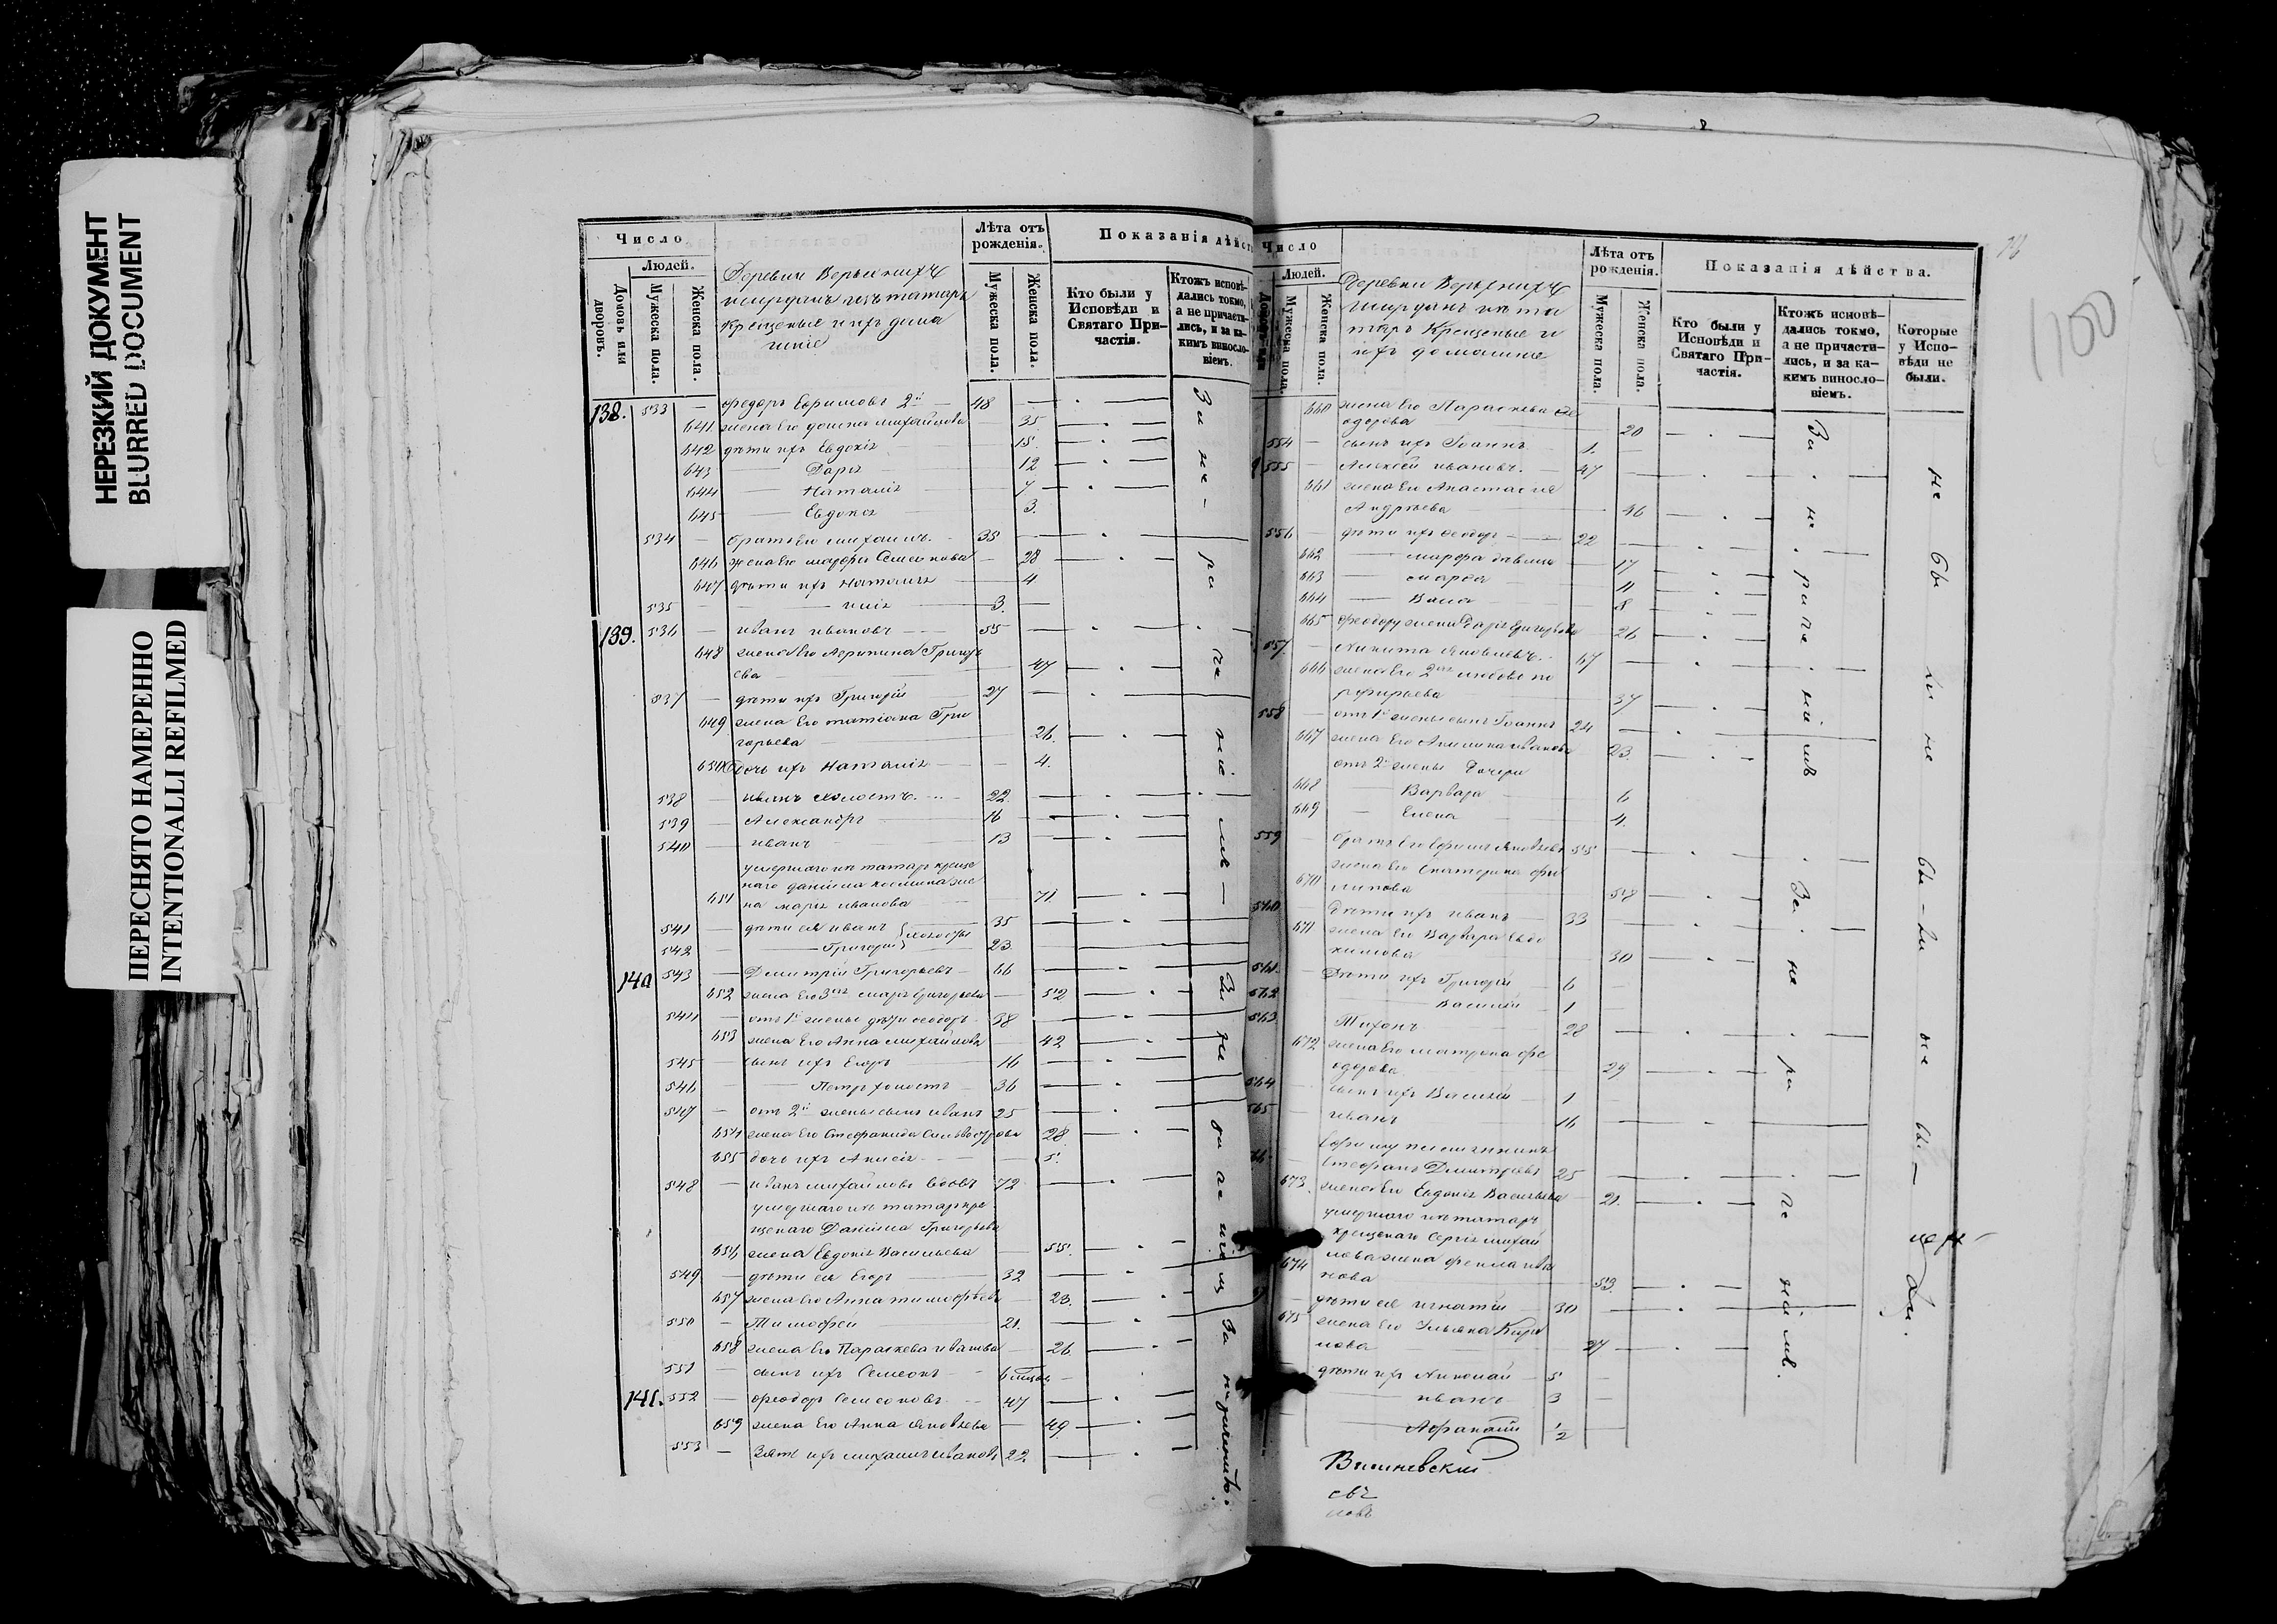 НЕРЕЗКИЙ ДОКУМЕНТ
BLURRED DOCUMENT
ПЕРЕСНЯТО НАМЕРЕННО
INTENTIONALLI REFILMED
Число
Людей.
Домовъ или дворовъ.
Мужеска пола.
Женска пола.
Лѣта отъ рожденія.
Мужеска пола.
Женска пола.
Показанія дѣйст
Кто были у Исповѣди и Святаго Причастія.
Ктожъ исповѣдались токмо, а не причастились, и за какимъ винословіемъ.
Деревни Верхнихъ
изъ татаръ
Крещеные и ихъ дома
шніе
138. 533 — Федоръ Ефимовъ 2й — 48
641 жена его Михайлова 35
642 дѣти ихъ Евдокія 15
643 Дарія 12
644 Наталія 7
645 Евдокія 3.
534 — братъ его Михаилъ. 35
646 жена его Марфа Семенова 28
647 дѣти ихъ Наталія 4
535 3.
139. 536 — Иванъ Ивановъ 55
648 жена его Агрипина Григорь
ева 47
537 — дѣти ихъ Григорій 27
649 жена его Татіана Гри
горьева 26.
650 дочь ихъ Наталія 4.
538 — Иванъ холостъ. 22
539 — Александръ 16
540 — Иванъ 13
умершаго изъ татаръ креще
наго Даніила же
651 на Марія Иванова 71
541 — дѣти ея Иванъ холосты 35
542 — Григорій 23
140 543 — Димитрій Григорьевъ 66
652 жена его 3я Марія Григорьева 52
544 — отъ 1й жены дѣти Феодоръ 38
653 жена его Анна Михайлова 42
545 — сынъ ихъ Егоръ 16
546 — Петръ холостъ 36
547 — отъ 2й жены сынъ Иванъ 25
654 жена его Стефанида Сильвестрова 28.
655 дочь ихъ Анисія 5.
548 — Иванъ Михайловъ вдовъ 72
умершаго изъ татаръ кре
щенаго Даніила Григорьева
656 жена Евдокія Васильева 55.
549 — дѣти ея Егоръ 32
657 жена его Анна Тимофѣева 23.
550 — Тимофей 21.
658 жена его Параскева Иванова 26
551 — сынъ ихъ Семеонъ
141. 552 — Феодоръ Семеоновъ 47
659 жена его Анна Яковлева 49
553 — Зять ихъ Михаилъ Ивановъ 22.
За не раченіемъ
За не раченіемъ
Число
Людей.
Мужеска пола
Женска пола.
Лѣта отъ рожденія.
Мужеска пола.
Женска пола.
Показанія дѣйства.
Кто были у Исповѣди и Святаго Причастія.
Ктожъ исповѣдались токмо, а не причастились, и за какимъ винословіемъ.
Которые у Исповѣди не были.
100
Деревни Верхнихъ
изъ та
таръ Крещеные и
ихъ домашніе
660 жена его Параскева Фе
одорова 20
554 — сынъ ихъ Іоаннъ 1.
555 — Алексѣй Ивановъ. 47
661 жена его Анастасія
Андреева 46
556 — дѣти ихъ Феодоръ 22
662 Марфа дѣвица 17
663 Марфа 11
664 8
665 Феодору жена Дарія Григорьева 26
557. — Никита Яковлевъ. 67
666 жена его 2я Любовь По
рфирьева 37
558 — отъ 1й жены сынъ Іоаннъ 24
667 жена его Акилина Иванова 23.
отъ 2й жены дочери
668 Варвара 6
669 Елена 4.
559 — братъ его Ефимъ Яковлевъ 55
жена его Екатерина Фи
670 липова 58
560 — дѣти ихъ Иванъ 33
671 жена его Варвара Евдо
кимова 30
561 — дѣти ихъ Григорій 6
562 Василій 1
563 Тихонъ 28
672 жена его Матрона Фе
одорова 29
564 сынъ ихъ Василій 1
565 — Иванъ 16
Стефанъ Димитріевъ 25
673. жена его Евдокія Васильева 21.
умершаго изъ татаръ
крещенаго Сергія Михай
674 лова жена Фекла Ива
нова 53.
дѣти ея Игнатій 30
675 жена его Ульяна Кири
лова 27
дѣти ихъ Николай 5
Иванъ 3
Афанасій 1/2
За не раченіемъ
За не раченіемъ.
не были не были не бы-
ли.
Вишневскій